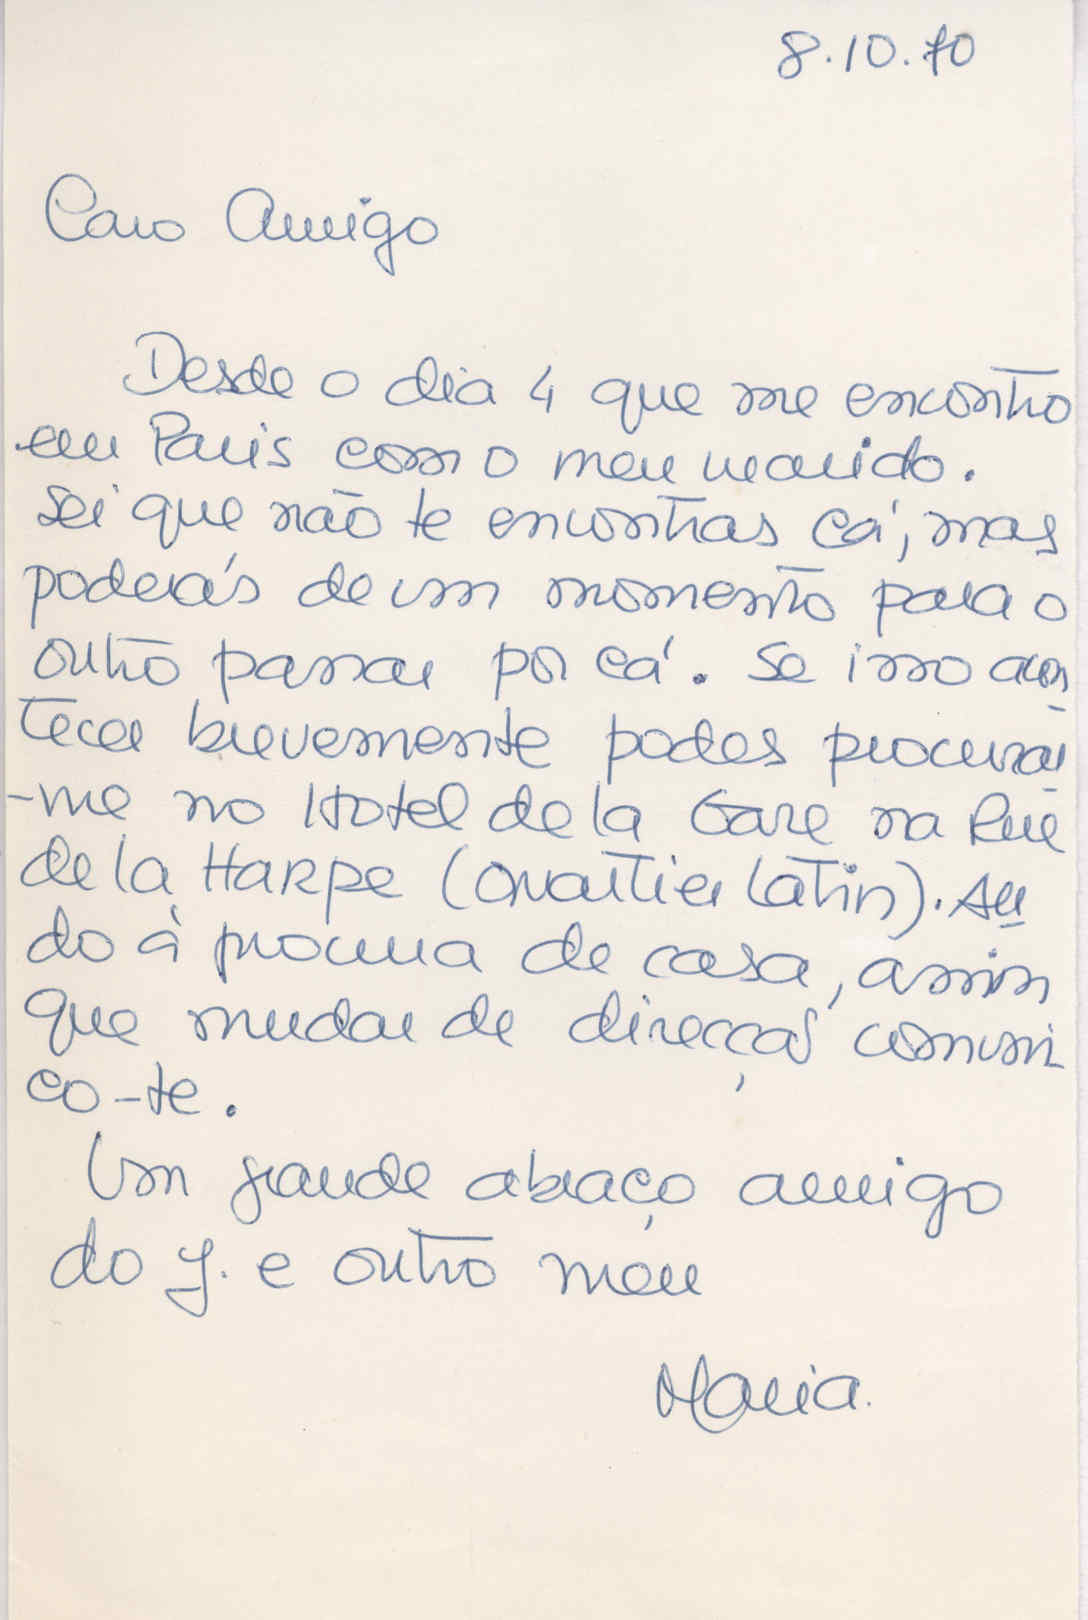 8.10.70
Caro Amigo
Desde o dia 4 que me encontro
em Paris com o meu marido.
Sei que não te encontras cá, mas
poderás de um momento para o
outro passar por cá. Se isso acon
tecer brevemente podes procurar
-me no Hotel de la Gare na Rue
de la Harpe (Quartier Latin). An
do à procura de casa, assim
que mudar de direcção comuni
co-te.
Um grande abraço amigo
do J. e outro meu
Maria.